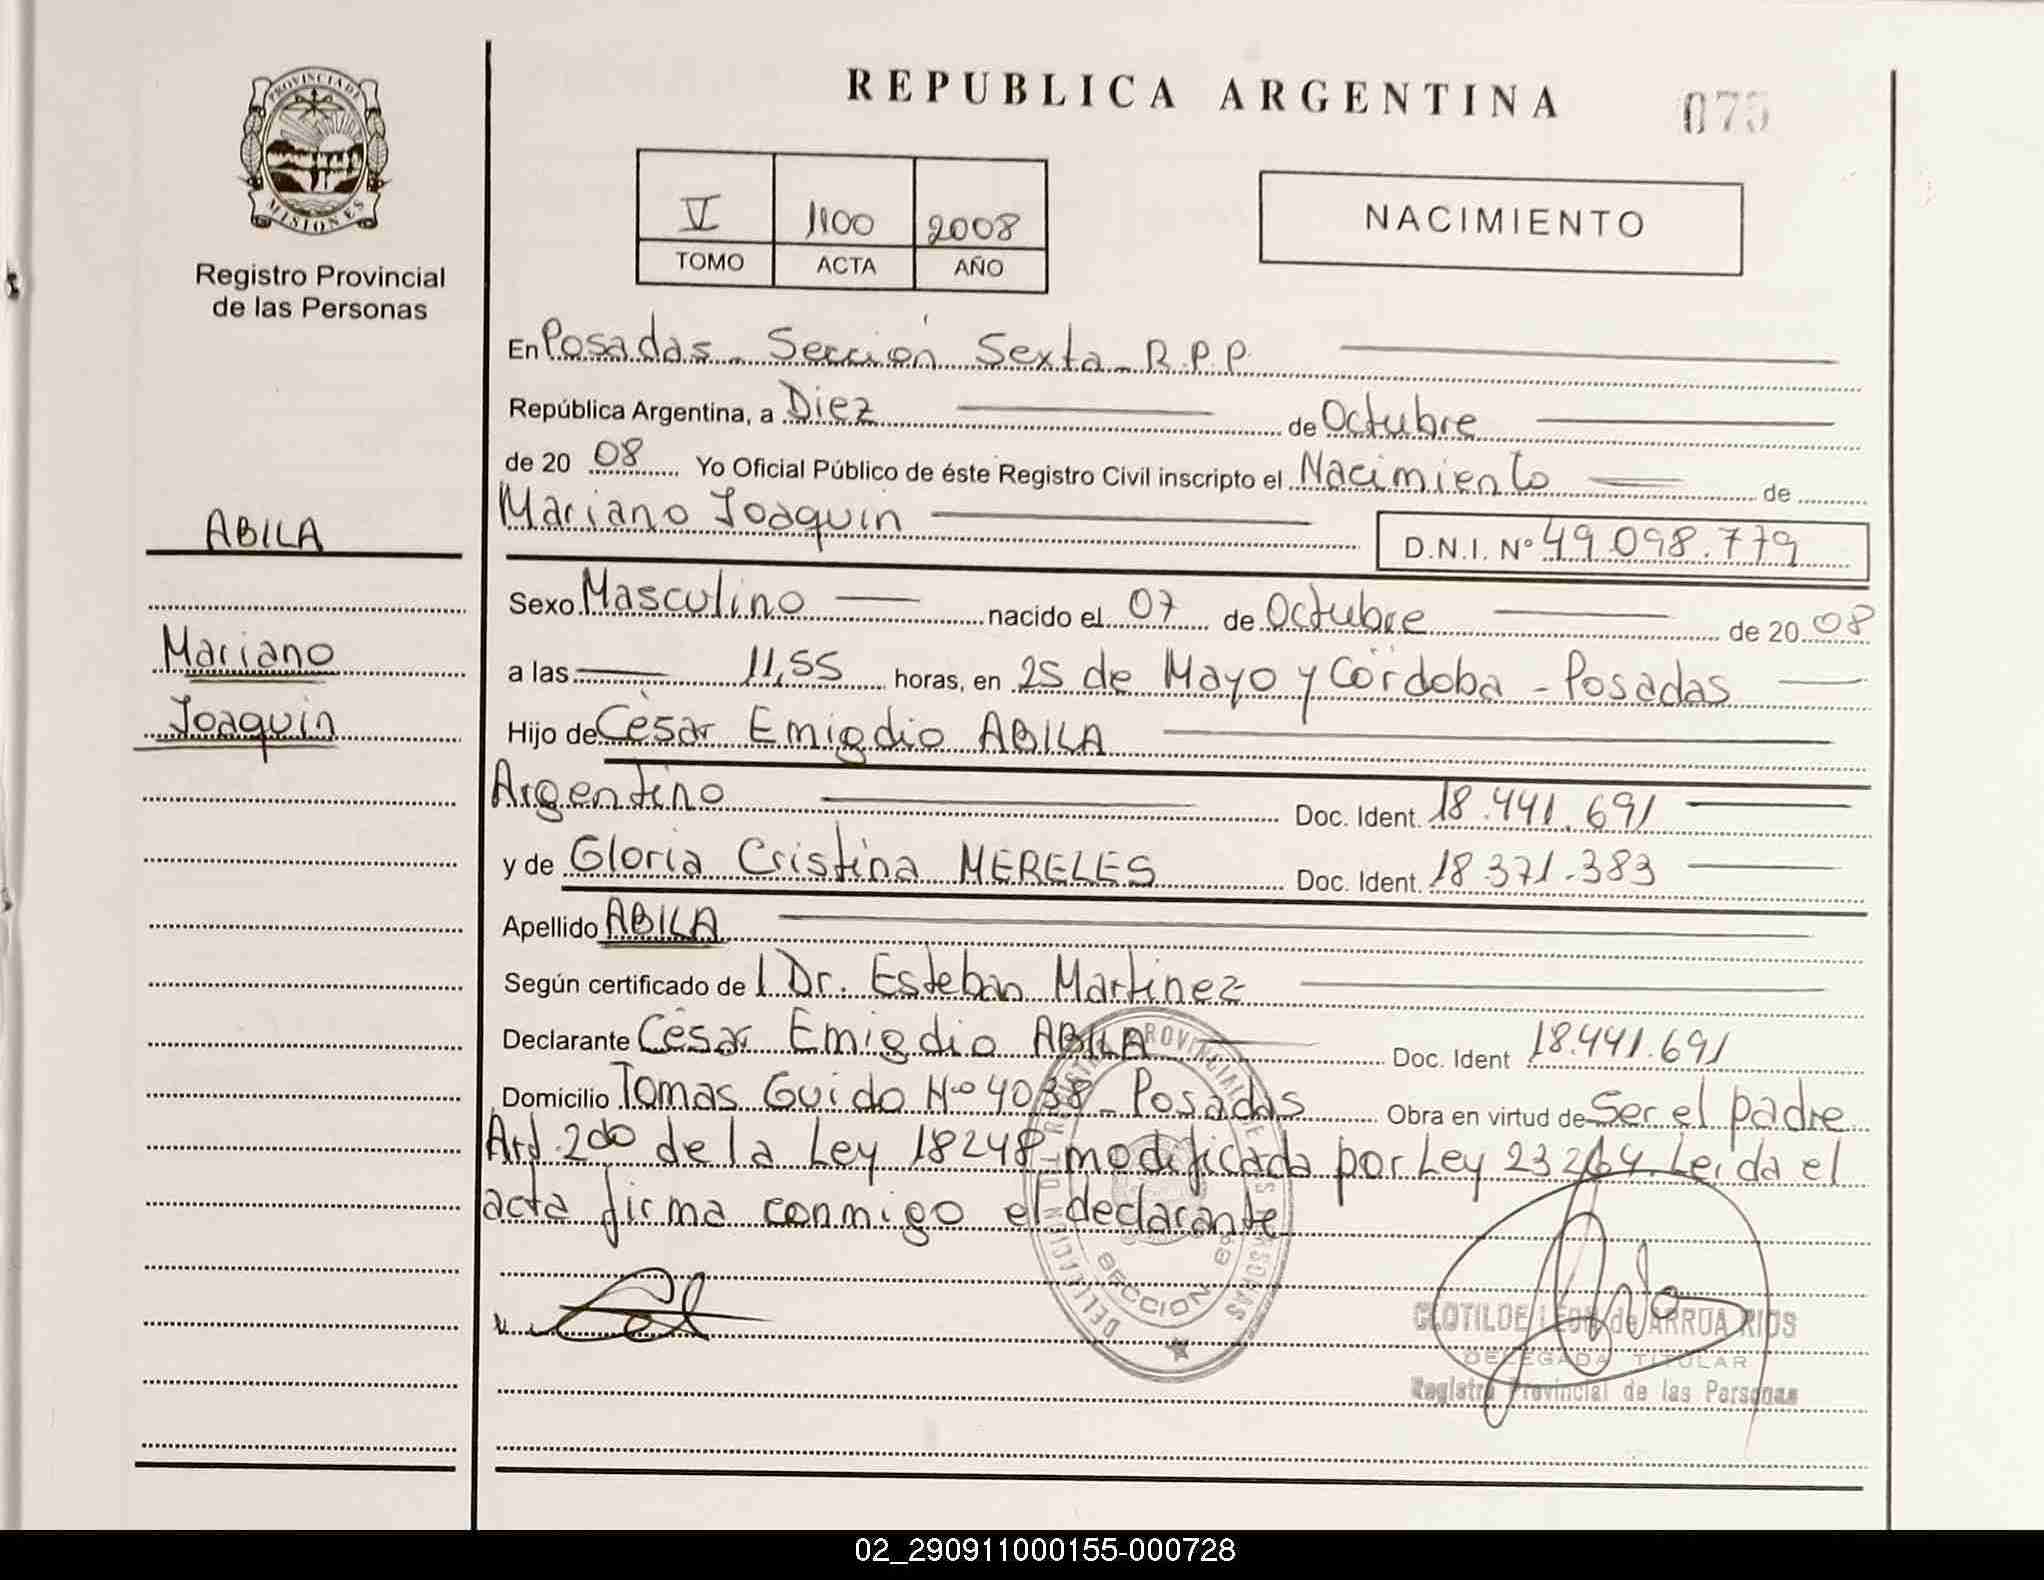 REPUBLICA ARGENTINA
075
PROVINCIA DE MISIONES
Registro Provincial
de las Personas
V 1100 2008
TOMO ACTA AÑO
NACIMIENTO
En Posadas - Sección Sexta - R.P.P.
República Argentina, a Diez de Octubre
de 20 08 Yo Oficial Público de éste Registro Civil inscripto el Nacimiento de
Mariano Joaquin D.N.I. Nº 49.098.779
ABILA
Mariano
Joaquin
Sexo Masculino nacido el 07 de Octubre de 20 08
a las 11,55 horas, en 25 de Mayo y Córdoba - Posadas
Hijo de César Emigdio ABILA
Argentino Doc. Ident. 18.441.691
y de Gloria Cristina MERELES Doc. Ident. 18.371.383
Apellido ABILA
Según certificado de l Dr. Esteban Martinez
Declarante César Emigdio ABILA Doc. Ident 18.441.691
Domicilio Tomas Guido Nº 4038 - Posadas Obra en virtud de Ser el padre
Art. 2do de la Ley 18248 modificada por Ley 23264. Leida el
acta firma conmigo el declarante
SECCION 6ª
CLOTILDE LEON de ARRUA RIOS
DELEGADA TITULAR
Registro Provincial de las Personas
02_290911000155-000728